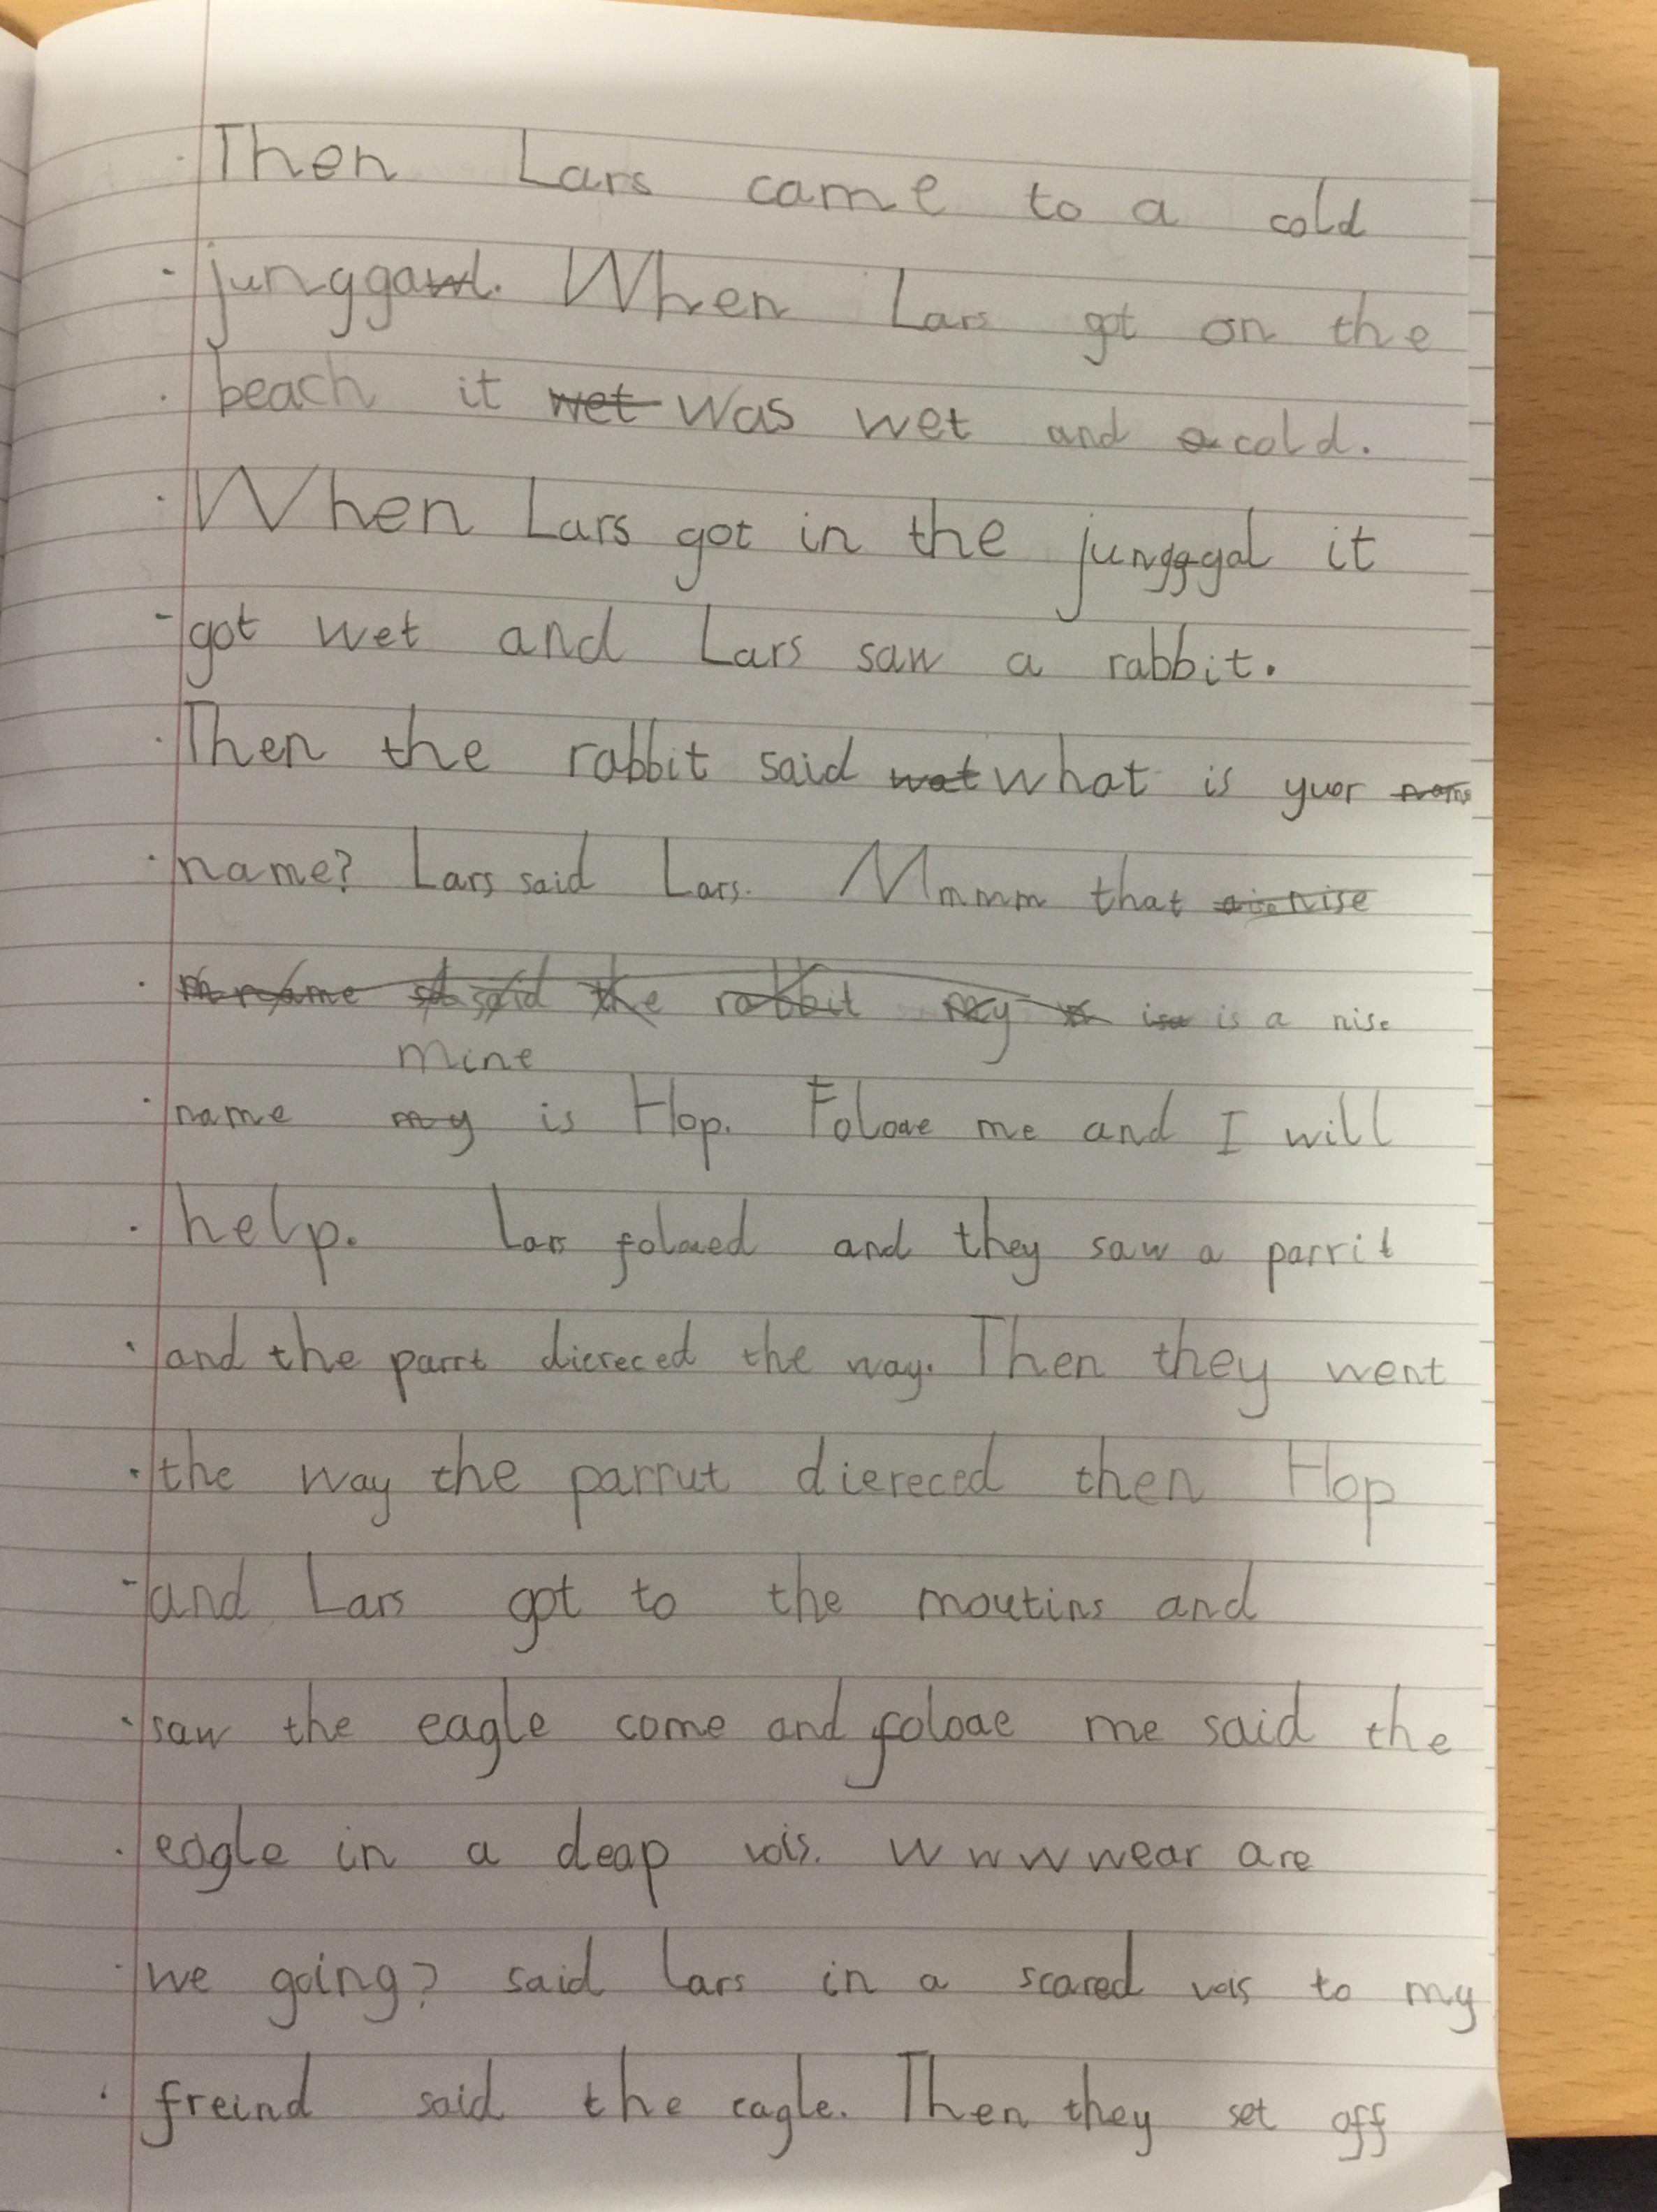 Then Lars came to a cold
junggawl. When Lars got on the
beach it wet was wet and a cold.
When Lars got in the jungggal it
got wet and Lars saw a rabbit.
Then the rabbit said wat what is yuor nams
name? Lars said Lars. Mmmm that nise
name said the rabbit my isa is a nise
mine
name my is Hop. Foloae me and I will
help. Lars foloaed and they saw a parrit
and the parrt diereced the way. Then they went
the way the parrut diereced then Hop
and Lars got to the moutins and
saw the eagle come and foloae me said the
eagle in a deap vois. w w w wear are
we going? said Lars in a scared vois to my
freind said the eagle. Then they set off